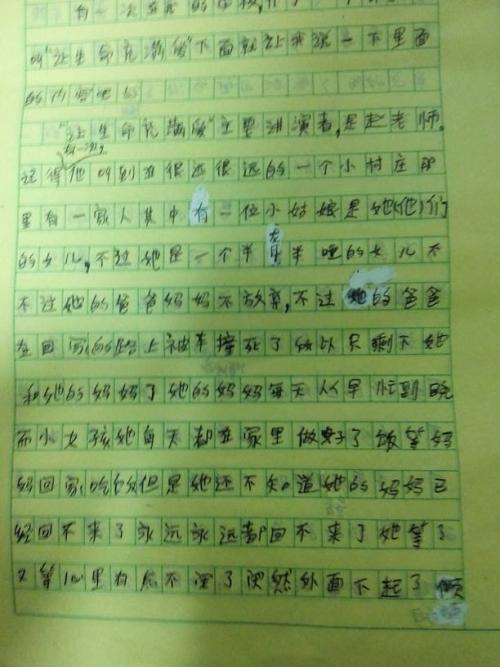 有一次
叫"让生命充满爱"下面就让我说一下里面
的内容吧
"让生命充满爱"主要讲演者,是赵老师。
有一次
记得他叫到在很远很远的一个小村庄那
里有一家人其中有一位小姑娘是她他们
的女儿,不过她是一个半聋半哑的女儿不
不过她的爸爸妈妈不放弃,不过她的爸爸
在回家的路上被车撞死了所以只剩下她
和她的妈妈了她的妈妈每天从早忙到晚
而小女孩她每天都在家里做好了饭等妈
妈回家吃饭但是她还不知道她的妈妈已
经回不来了永远永远都回不来了她等了
又等心里有点不了突然外面下起了倾